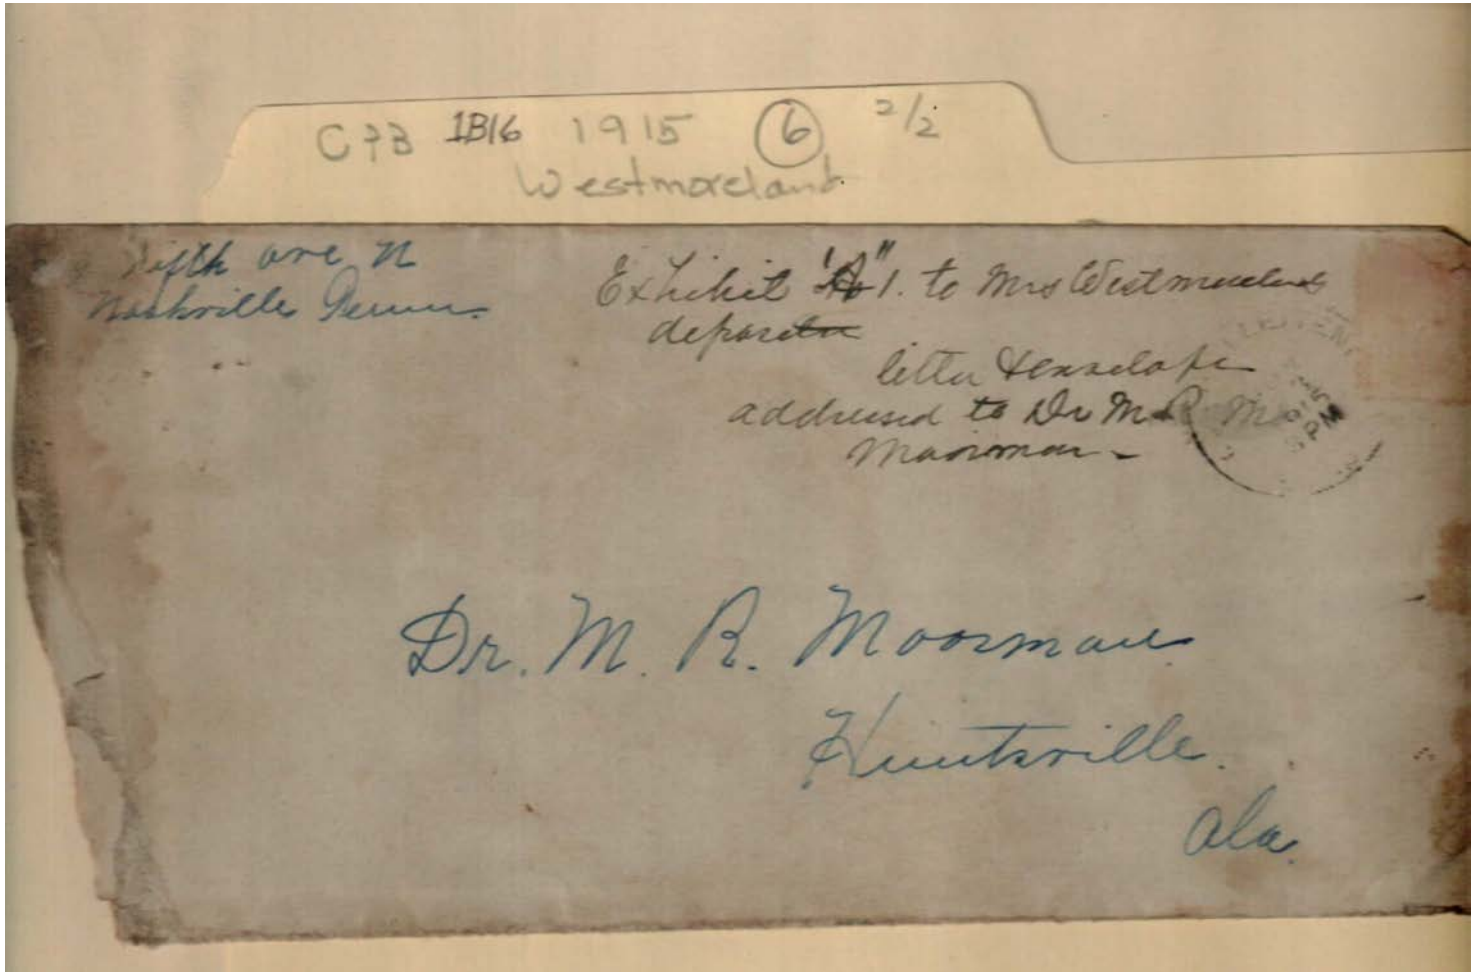 C&B 1B16 1915 6 2/2
Westmoreland
Fifth ave N
Nashville Tenn.
Exhibit "A" 1. to Mrs Westmorelands
deposition
letter & envelope
addressed to Dr M. R. M
Moorman -
PM
Dr. M. R. Moorman
Huntsville.
Ala.